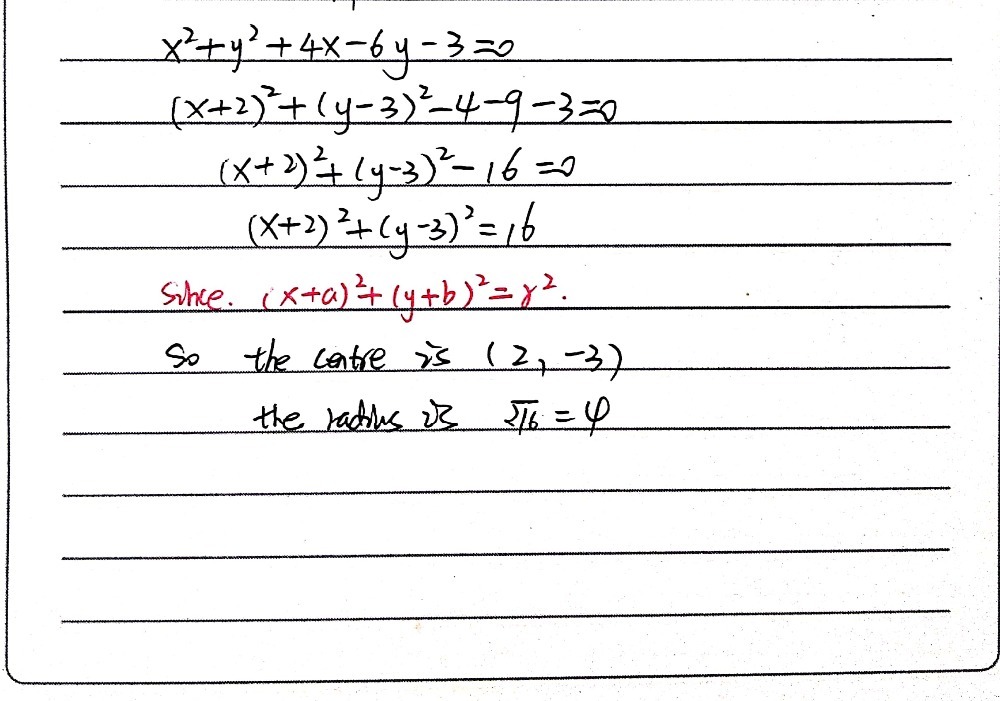 x²+y²+4x-6y-3=0
(x+2)²+(y-3)²-4-9-3=0
(x+2)²+(y-3)²-16=0
(x+2)²+(y-3)²=16
Since. (x+a)²+(y+b)²=r².
So the centre is (2, -3)
the radius is ²√16=4